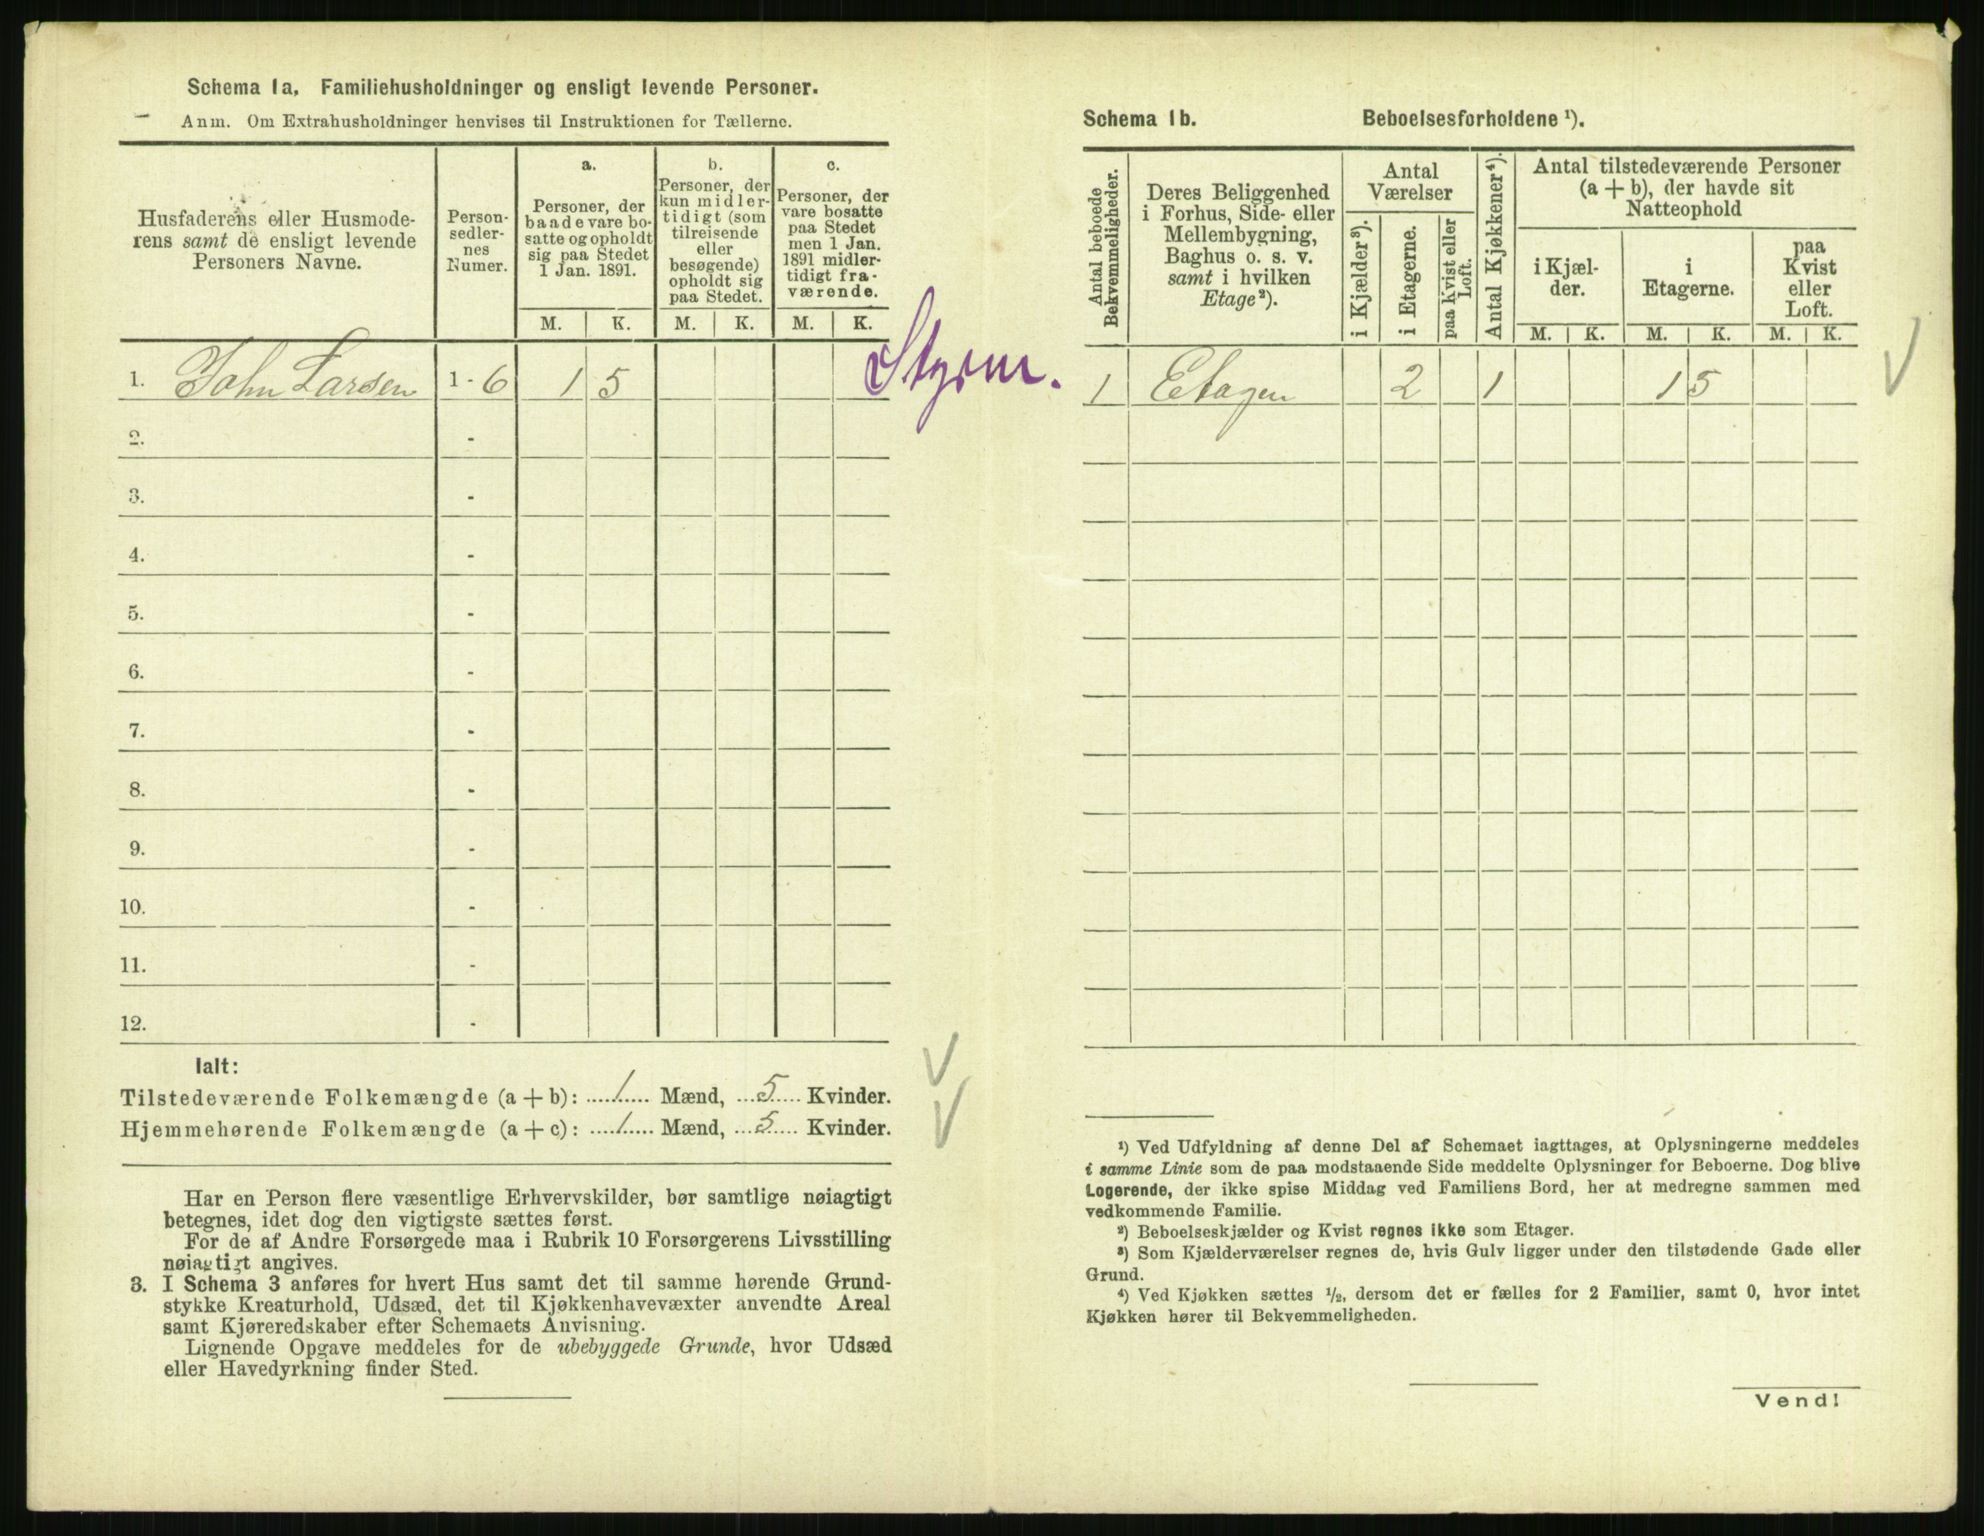 Schema 1a. Familiehusholdninger og ensligt levende Personer.
Anm. Om Extrahusholdninger henvises til Instruktionen for Tællerne.
Husfaderens eller Husmode-
rens samt de ensligt levende
Personers Navne.
Person-
sedler-
nes
Numer.
a.
Personer, der
baade vare bo-
satte og opholdt
sig paa Stedet
1 Jan. 1891.
b.
Personer, der
kun midler-
tidigt (som
tilreisende
eller
besøgende)
opholdt sig
paa Stedet.
c.
Personer, der
vare bosatte
paa Stedet
men 1 Jan.
1891 midler-
tidigt fra-
værende.
M. K. M. K. M. K.
1. John Larsen 1-6 1 5
Styrm.
2. -
3. -
4. -
5. -
6. -
7. -
8. -
9. -
10. -
11. -
12. -
Ialt:
Tilstedeværende Folkemængde (a + b): 1 Mænd, 5 Kvinder.
Hjemmehørende Folkemængde (a + c): 1 Mænd, 5 Kvinder.
Har en Person flere væsentlige Erhvervskilder, bør samtlige nøiagtigt
betegnes, idet dog den vigtigste sættes først.
For de af Andre Forsørgede maa i Rubrik 10 Forsørgerens Livsstilling
nøiagtigt angives.
3. I Schema 3 anføres for hvert Hus samt det til samme hørende Grund-
stykke Kreaturhold, Udsæd, det til Kjøkkenhavevæxter anvendte Areal
samt Kjøreredskaber efter Schemaets Anvisning.
Lignende Opgave meddeles for de ubebyggede Grunde, hvor Udsæd
eller Havedyrkning finder Sted.
Schema 1b. Beboelsesforholdene ¹).
Antal beboede
Bekvemmeligheder.
Deres Beliggenhed
i Forhus, Side- eller
Mellembygning,
Baghus o. s. v.
samt i hvilken
Etage ²).
Antal
Værelser
i Kjælder ³).
i Etagerne.
paa Kvist eller
Loft.
Antal Kjøkkener ⁴).
Antal tilstedeværende Personer
(a + b), der havde sit
Natteophold
i Kjæl-
der.
i
Etagerne.
paa
Kvist
eller
Loft.
M. K. M. K. M. K.
1 Etagen 2 1 1 5
¹) Ved Udfyldning af denne Del af Schemaet iagttages, at Oplysningerne meddeles
i samme Linie som de paa modstaaende Side meddelte Oplysninger for Beboerne. Dog blive
Logerende, der ikke spise Middag ved Familiens Bord, her at medregne sammen med
vedkommende Familie.
²) Beboelseskjælder og Kvist regnes ikke som Etager.
³) Som Kjælderværelser regnes de, hvis Gulv ligger under den tilstødende Gade eller
Grund.
⁴) Ved Kjøkken sættes ½, dersom det er fælles for 2 Familier, samt 0, hvor intet
Kjøkken hører til Bekvemmeligheden.
Vend!